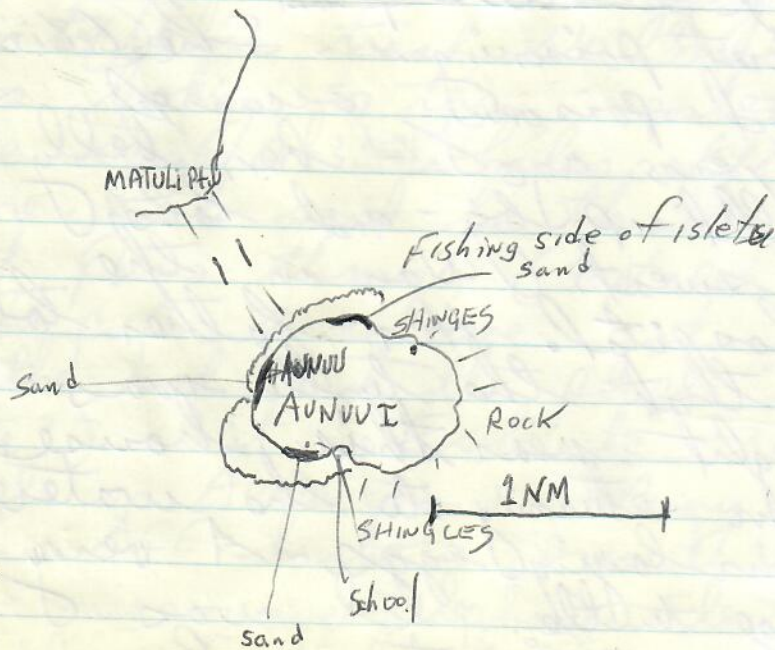 MATULIPAU
Fishing side of islet
sand
SHINGES
Sand
AUNUU
AUNUU I
ROCK
1NM
SHINGLES
School
sand